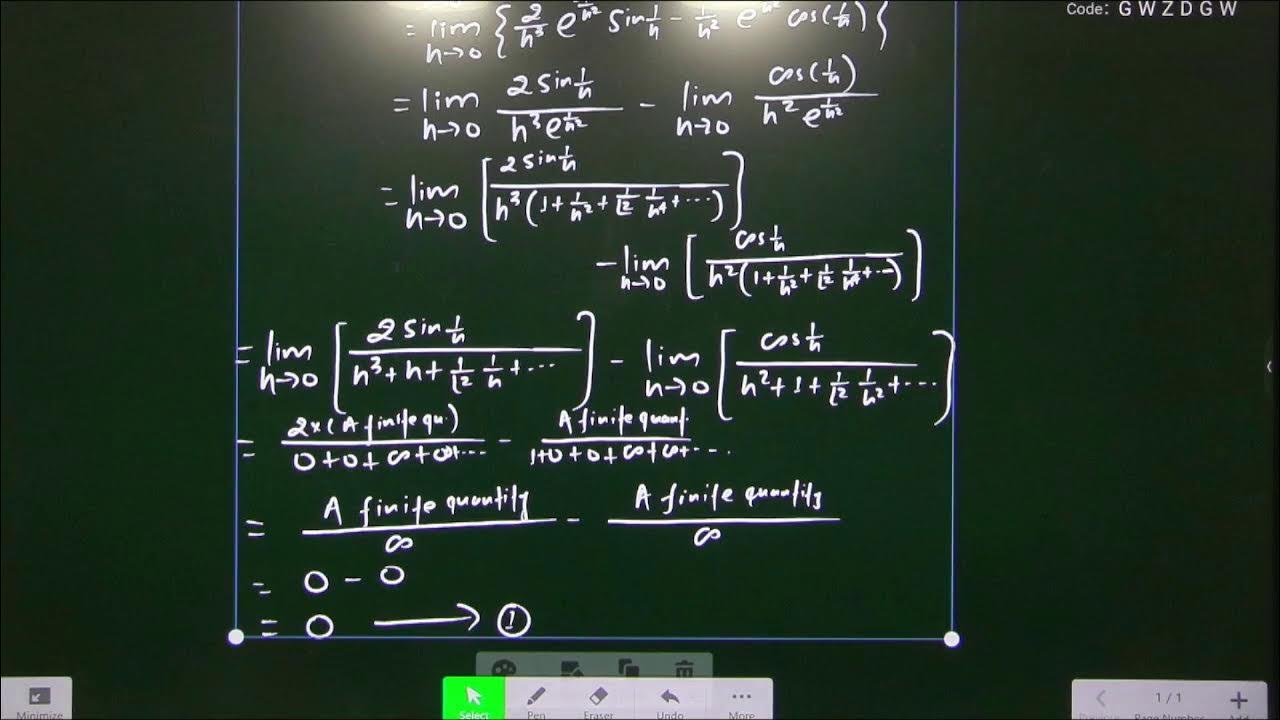 Code: G W Z D G W
= lim h→0 { 2/h³ e^(-1/h²) sin 1/h − 1/h² e^(-1/h²) cos(1/h) }
= lim h→0 2 sin 1/h / h³ e^(1/h²) − lim h→0 cos(1/h) / h² e^(1/h²)
= lim h→0 [ 2 sin 1/h / h³(1 + 1/h² + 1/⌊2 1/h⁴ + ⋯) ]
− lim h→0 [ cos 1/h / h²(1 + 1/h² + 1/⌊2 1/h⁴ + ⋯) ]
= lim h→0 [ 2 sin 1/h / h³ + h + 1/⌊2 1/h + ⋯ ] − lim h→0 [ cos 1/h / h² + 1 + 1/⌊2 1/h² + ⋯ ]
= 2×(A finite qu.) / 0 + 0 + ∞ + ∞ + ⋯ − A finite quant. / 1+0 + 0 + ∞ + ∞ + ⋯
= A finite quantity / ∞ − A finite quantity / ∞
= 0 − 0
= 0 ⟶ ①
Minimize
Select Pen Eraser Undo More
1 / 1